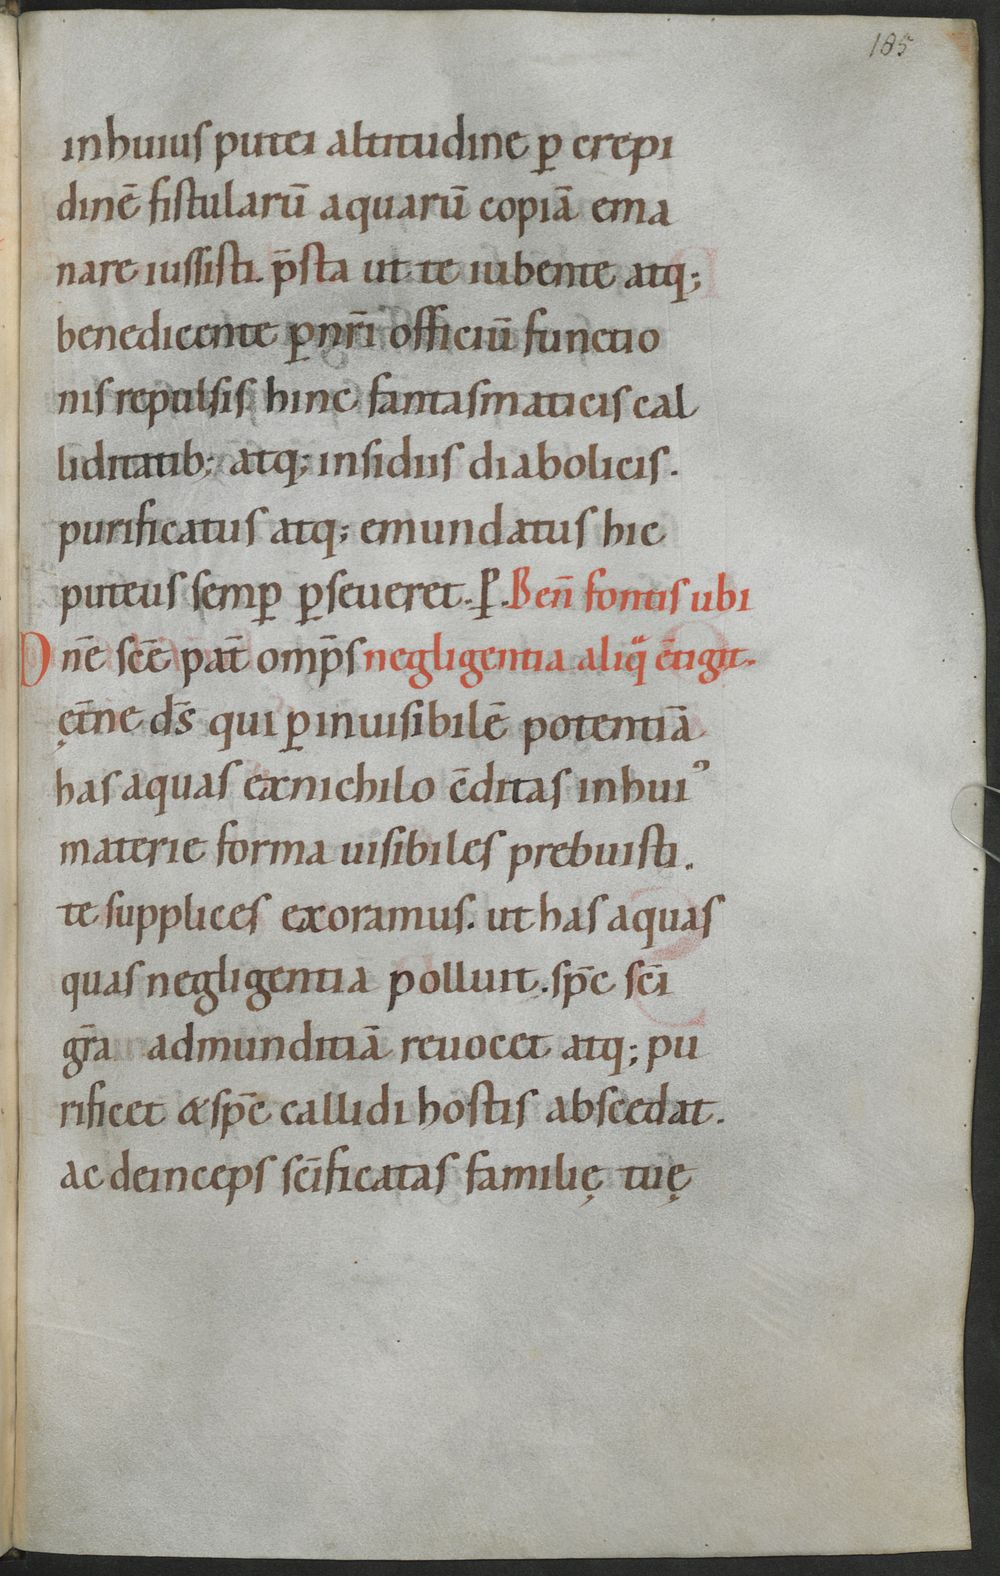 185
in huius putei altitudine ꝑ crepi
dinē fistularū aquarū copiā ema
nare iussisti. p̄sta ut te iubente atq;
benedicente ꝑ nr̄i officiū functio
nis repulsis hinc fantasmaticis cal
liditatib; atq; insidiis diabolicis.
purificatus atq; emundatus hic
puteus semꝑ ꝑseueret. ꝑ. Ben̄ fontis ubi
Dnē scē pat̄ omp̄s negligentia aliq̄ c̄tigit.
ęt̄ne ds̄ qui ꝑ inuisibilē potentiā
has aquas ex nichilo c̄ditas in huiꝰ
materie forma uisibiles prebuisti.
te supplices exoramus. ut has aquas
quas negligentia polluit. sp̄c sc̄i
gr̄a ad munditiā reuocet atq; pu
rificet & sp̄c callidi hostis abscedat.
ac deinceps sc̄ificatas familię tuę